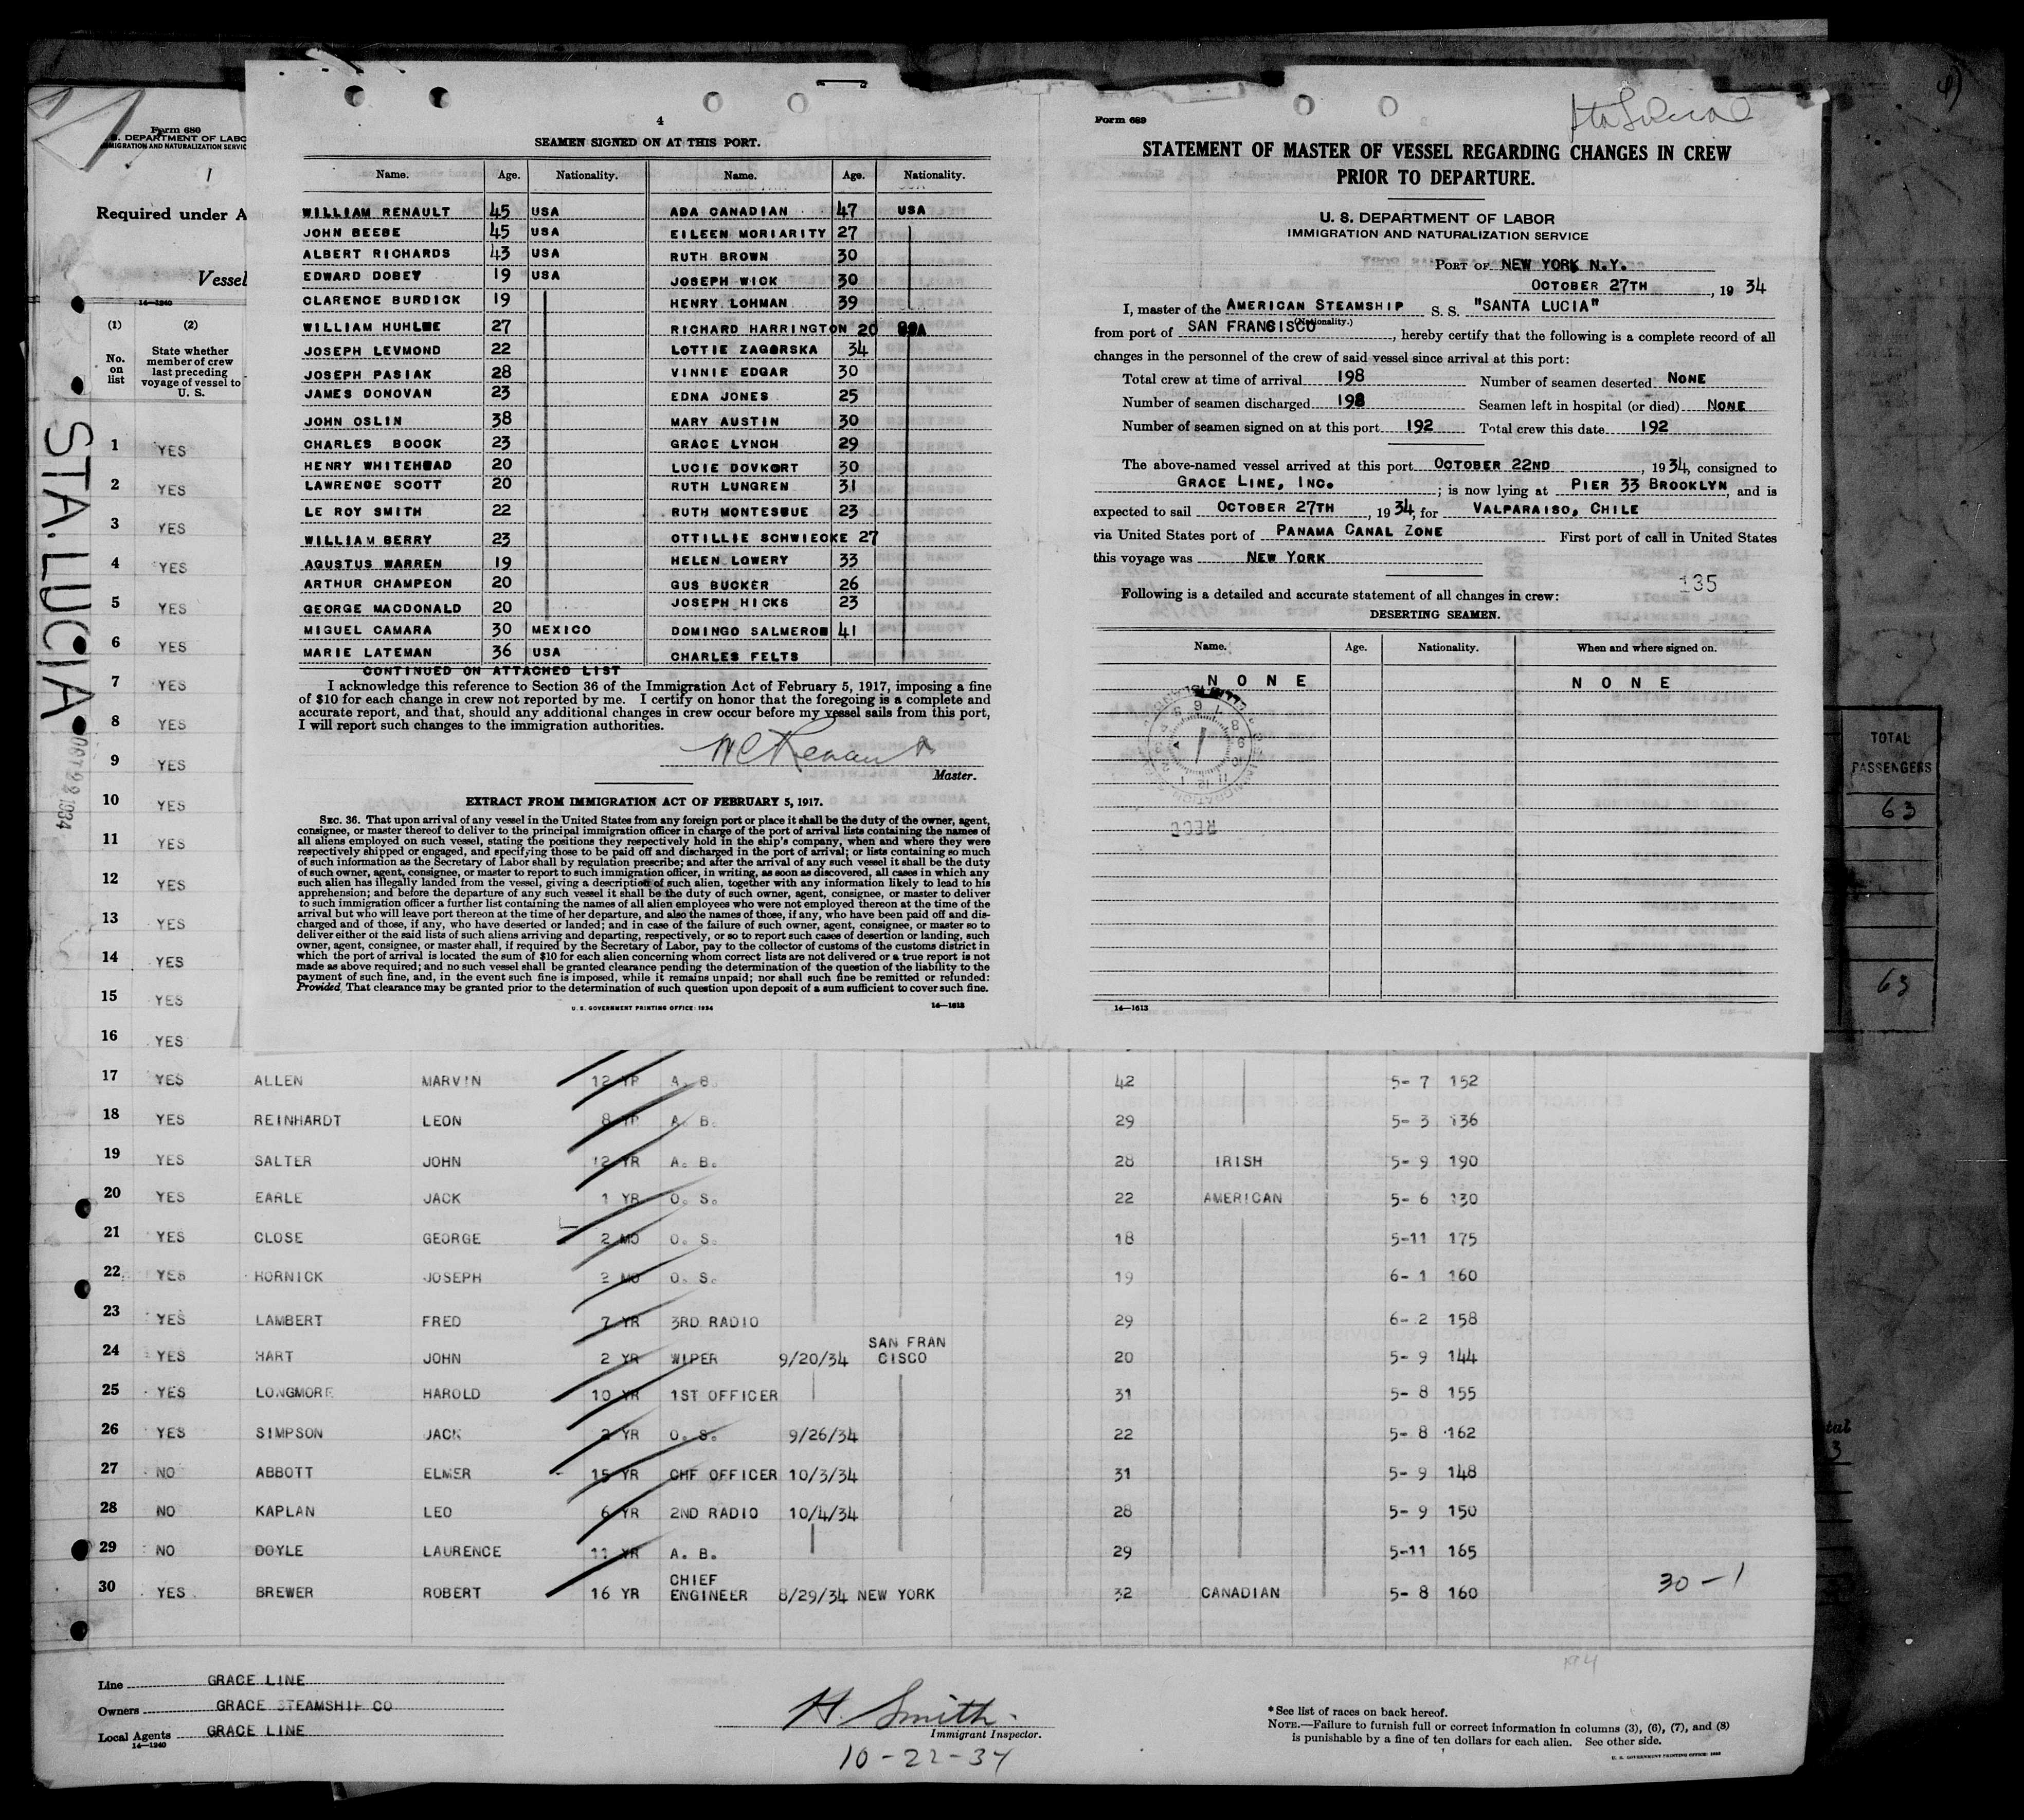 Form 680
S. DEPARTMENT OF LABO
MIGRATION AND NATURALIZATION SERVIC
1
Required under A
Vessel
14—1240
(1) (2)
No. on list
State whether
member of crew
last preceding
voyage of vessel to
U. S.
STA. LUCIA
OCT 22 1934
4
SEAMEN SIGNED ON AT THIS PORT.
Name. Age. Nationality. Name. Age. Nationality.
WILLIAM RENAULT 45 USA ADA CANADIAN 47 USA
JOHN BEEBE 45 USA EILEEN MORIARITY 27
ALBERT RICHARDS 43 USA RUTH BROWN 30
EDWARD DOBEY 19 USA JOSEPH WICK 30
CLARENCE BURDICK 19 HENRY LOHMAN 39
WILLIAM HUHLEE 27 RICHARD HARRINGTON 20 USA
JOSEPH LEVMOND 22 LOTTIE ZAGORSKA 34
JOSEPH PASIAK 28 VINNIE EDGAR 30
JAMES DONOVAN 23 EDNA JONES 25
JOHN OSLIN 38 MARY AUSTIN 30
CHARLES BOOCK 23 GRACE LYNCH 29
HENRY WHITEHEAD 20 LUCIE DOVKORT 30
LAWRENCE SCOTT 20 RUTH LUNGREN 31
LE ROY SMITH 22 RUTH MONTESGUE 23
WILLIAM BERRY 23 OTTILLIE SCHWIECKE 27
AGUSTUS WARREN 19 HELEN LOWERY 33
ARTHUR CHAMPEON 20 GUS BUCKER 26
GEORGE MACDONALD 20 JOSEPH HICKS 23
MIGUEL CAMARA 30 MEXICO DOMINGO SALMERON 41
MARIE LATEMAN 36 USA CHARLES FELTS
CONTINUED ON ATTACHED LIST
I acknowledge this reference to Section 36 of the Immigration Act of February 5, 1917, imposing a fine
of $10 for each change in crew not reported by me. I certify on honor that the foregoing is a complete and
accurate report, and that, should any additional changes in crew occur before my vessel sails from this port,
I will report such changes to the immigration authorities.
Master.
EXTRACT FROM IMMIGRATION ACT OF FEBRUARY 5, 1917.
SEC. 36. That upon arrival of any vessel in the United States from any foreign port or place it shall be the duty of the owner, agent,
consignee, or master thereof to deliver to the principal immigration officer in charge of the port of arrival lists containing the names of
all aliens employed on such vessel, stating the positions they respectively hold in the ship's company, when and where they were
respectively shipped or engaged, and specifying those to be paid off and discharged in the port of arrival; or lists containing so much
of such information as the Secretary of Labor shall by regulation prescribe; and after the arrival of any such vessel it shall be the duty
of such owner, agent, consignee, or master to report to such immigration officer, in writing, as soon as discovered, all cases in which any
such alien has illegally landed from the vessel, giving a description of such alien, together with any information likely to lead to his
apprehension; and before the departure of any such vessel it shall be the duty of such owner, agent, consignee, or master to deliver
to such immigration officer a further list containing the names of all alien employees who were not employed thereon at the time of the
arrival but who will leave port thereon at the time of her departure, and also the names of those, if any, who have been paid off and dis-
charged and of those, if any, who have deserted or landed; and in case of the failure of such owner, agent, consignee, or master so to
deliver either of the said lists of such aliens arriving and departing, respectively, or so to report such cases of desertion or landing, such
owner, agent, consignee, or master shall, if required by the Secretary of Labor, pay to the collector of customs of the customs district in
which the port of arrival is located the sum of $10 for each alien concerning whom correct lists are not delivered or a true report is not
made as above required; and no such vessel shall be granted clearance pending the determination of the question of the liability to the
payment of such fine, and, in the event such fine is imposed, while it remains unpaid; nor shall such fine be remitted or refunded:
Provided, That clearance may be granted prior to the determination of such question upon deposit of a sum sufficient to cover such fine.
U. S. GOVERNMENT PRINTING OFFICE: 1934 14—1613
Form 689
STATEMENT OF MASTER OF VESSEL REGARDING CHANGES IN CREW
PRIOR TO DEPARTURE.
U. S. DEPARTMENT OF LABOR
IMMIGRATION AND NATURALIZATION SERVICE
PORT OF NEW YORK N.Y.
OCTOBER 27TH, 19 34
I, master of the AMERICAN STEAMSHIP S. S. "SANTA LUCIA"
(Nationality.)
from port of SAN FRANCISCO, hereby certify that the following is a complete record of all
changes in the personnel of the crew of said vessel since arrival at this port:
Total crew at time of arrival 198 Number of seamen deserted NONE
Number of seamen discharged 198 Seamen left in hospital (or died) NONE
Number of seamen signed on at this port 192 Total crew this date 192
The above-named vessel arrived at this port OCTOBER 22ND, 1934, consigned to
GRACE LINE, INC.; is now lying at PIER 33 BROOKLYN, and is
expected to sail OCTOBER 27TH, 1934, for VALPARAISO, CHILE
via United States port of PANAMA CANAL ZONE First port of call in United States
this voyage was NEW YORK
135
Following is a detailed and accurate statement of all changes in crew:
DESERTING SEAMEN.
Name. Age. Nationality. When and where signed on.
NONE NONE
RECD
14—1613
TOTAL
PASSENGERS
63
63
1 YES
2 YES
3 YES
4 YES
5 YES
6 YES
7 YES
8 YES
9 YES
10 YES
11 YES
12 YES
13 YES
14 YES
15 YES
16 YES
17 YES ALLEN MARVIN 12 YR A. B. 42 5-7 152
18 YES REINHARDT LEON 8 YR A. B. 29 5-3 136
19 YES SALTER JOHN 12 YR A. B. 28 IRISH 5-9 190
20 YES EARLE JACK 1 YR O. S. 22 AMERICAN 5-6 130
21 YES CLOSE GEORGE 2 MO O. S. 18 5-11 175
22 YES HORNICK JOSEPH 2 MO O. S. 19 6-1 160
23 YES LAMBERT FRED 7 YR 3RD RADIO 29 6-2 158
24 YES HART JOHN 2 YR WIPER 9/20/34 SAN FRAN CISCO 20 5-9 144
25 YES LONGMORE HAROLD 10 YR 1ST OFFICER 31 5-8 155
26 YES SIMPSON JACK 2 YR O. S. 9/26/34 22 5-8 162
27 NO ABBOTT ELMER 15 YR CHF OFFICER 10/3/34 31 5-9 148
28 NO KAPLAN LEO 6 YR 2ND RADIO 10/4/34 28 5-9 150
29 NO DOYLE LAURENCE 11 YR A. B. 29 5-11 165
30 YES BREWER ROBERT 16 YR CHIEF ENGINEER 8/29/34 NEW YORK 32 CANADIAN 5-8 160
30-1
Line GRACE LINE
Owners GRACE STEAMSHIP CO
Local Agents GRACE LINE
14—1240
H. Smith.
Immigrant Inspector.
10-22-34
*See list of races on back hereof.
NOTE.—Failure to furnish full or correct information in columns (3), (6), (7), and (8)
is punishable by a fine of ten dollars for each alien. See other side.